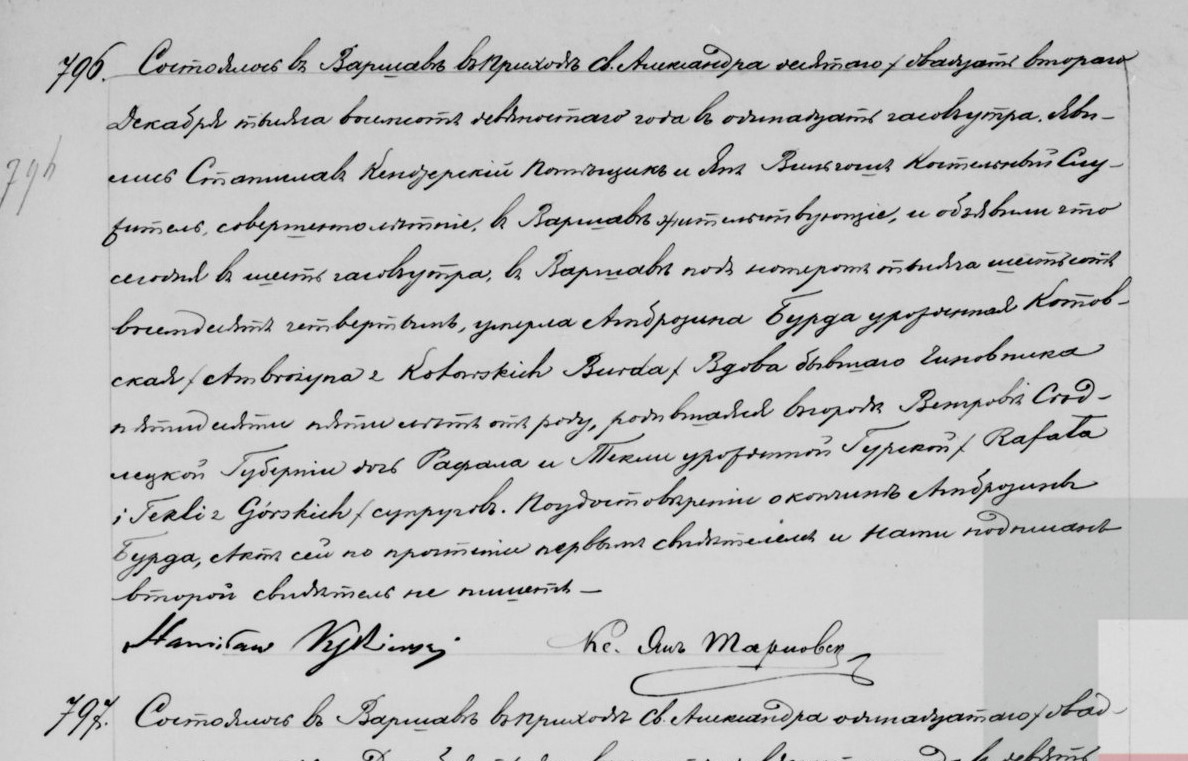 796. Состоялось въ Варшавѣ въ приходѣ Св. Александра десятаго / двадцать втораго
Декабря тысяча восемсотъ девяностаго года въ одинадцать часовъ утра. Яви-
лись Станиславъ Кендзерскій Помѣщикъ и Янъ Вильгошъ Костельный Слу-
житель, совершеннолѣтніе, въ Варшавѣ жительствующіе, и объявили что
сегодня въ шесть часовъ утра, въ Варшавѣ подъ номеромъ тысяча шестьсотъ
восемдесятъ четвертымъ, умерла Амброзина Бурда урожденная Котов-
ская / Ambrożyna z Kotowskich Burda / Вдова бывшаго Чиновника
пятидесяти пяти лѣтъ отъ роду, родившаяся въ городѣ Венгровѣ Сѣд-
лецкой Губерніи дочь Рафала и Текли урожденной Гурской / Rafała
i Tekli z Górskich / супруговъ. По удостовѣреніи о кончинѣ Амброзины
Бурда, Актъ сей по прочтеніи первымъ свидѣтелемъ и Нами подписанъ
второй свидѣтель не пишетъ —
Stanisław Кс. Янъ Тарновск
797. Состоялось въ Варшавѣ въ приходѣ Св. Александра одинадцатаго / двад-
794